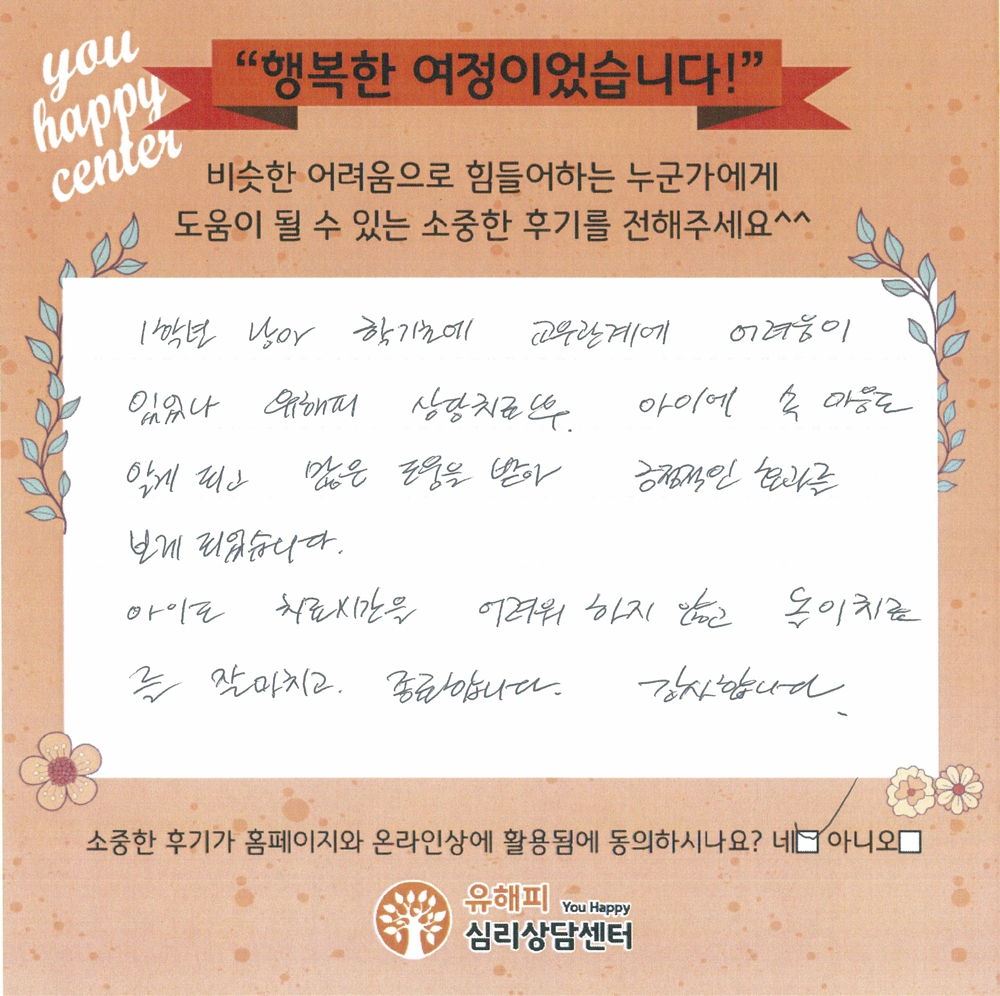 you
happy
center
“행복한 여정이었습니다!”
비슷한 어려움으로 힘들어하는 누군가에게
도움이 될 수 있는 소중한 후기를 전해주세요^^
1학년 남아 학기초에 교우관계에 어려움이
있었나 유해피 상담치료후. 아이에 속 마음도
알게 되고 많은 도움을 받아 긍정적인 효과를
보게 되었습니다.
아이도 치료시간을 어려워 하지 않고 놀이치료
를 잘마치고. 종료합니다. 감사합니다.
소중한 후기가 홈페이지와 온라인상에 활용됨에 동의하시나요? 네 아니오
유해피 You Happy
심리상담센터